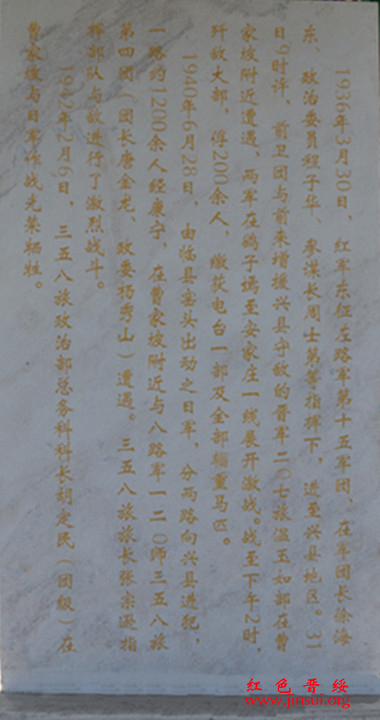 1936年3月30日，红军东征左路军第十五军团，在军团长徐海
东、政治委员程子华、参谋长周士第等指挥下，进至兴县地区。31
日9时许，前卫团与前来增援兴县守敌的晋军二〇七旅温玉如部在曹
家坡附近遭遇，两军在鹞子墕至安家庄一线展开激战。战至下午2时，
歼敌大部，俘200余人，缴获电台一部及全部辎重马匹。
1940年6月28日，由临县窑头出动之日军，分两路向兴县进犯，
一路约1200余人经康宁，在曹家坡附近与八路军一二〇师三五八旅
第四团（团长唐金龙、政委杨秀山）遭遇。三五八旅旅长张宗逊指
挥部队与敌进行了激烈战斗。
1942年2月6日，三五八旅政治部总务科科长胡定民（团级）在
曹家坡与日军作战光荣牺牲。
红色晋绥
www.jinsui.org